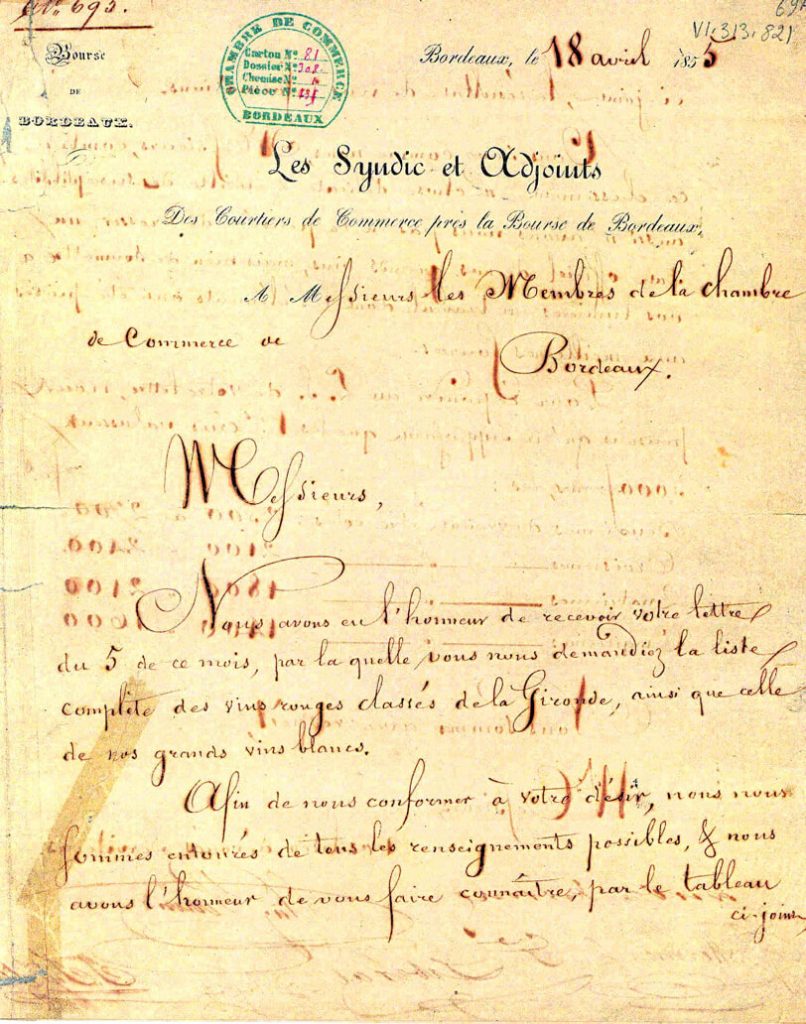 No. 693.
VI.313.821
Bourse
DE
BORDEAUX.
CHAMBRE DE COMMERCE
Carton No. 81
Dossier No. 302
Chemise No.
Pièce No.
BORDEAUX
Bordeaux, le 18 avril 1855
Les Syndic et Adjoints
Des Courtiers de Commerce près la Bourse de Bordeaux,
A Messieurs les Membres de la chambre
de Commerce de
Bordeaux.
Messieurs,
Nous avons eu l'honneur de recevoir votre lettre
du 5 de ce mois, par la quelle vous nous demandiez la liste
complète des vins rouges classés de la Gironde, ainsi que celle
de nos grands vins blancs.
Afin de nous conformer à votre désir, nous nous
sommes entourés de tous les renseignements possibles, & nous
avons l'honneur de vous faire connaître, par le tableau
ci-joint